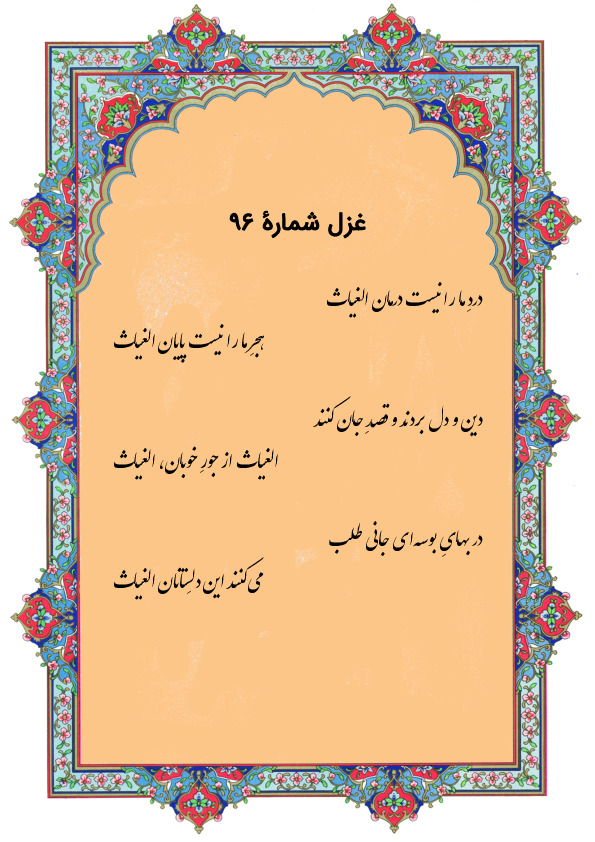 غزل شمارهٔ ۹۶
دردِ ما را نیست درمان الغیاث
هجرِ ما را نیست پایان الغیاث
دین و دل بردند و قصدِ جان کنند
الغیاث از جورِ خوبان، الغیاث
در بهایِ بوسه‌ای جانی طلب
می‌کنند این دلسِتانان الغیاث